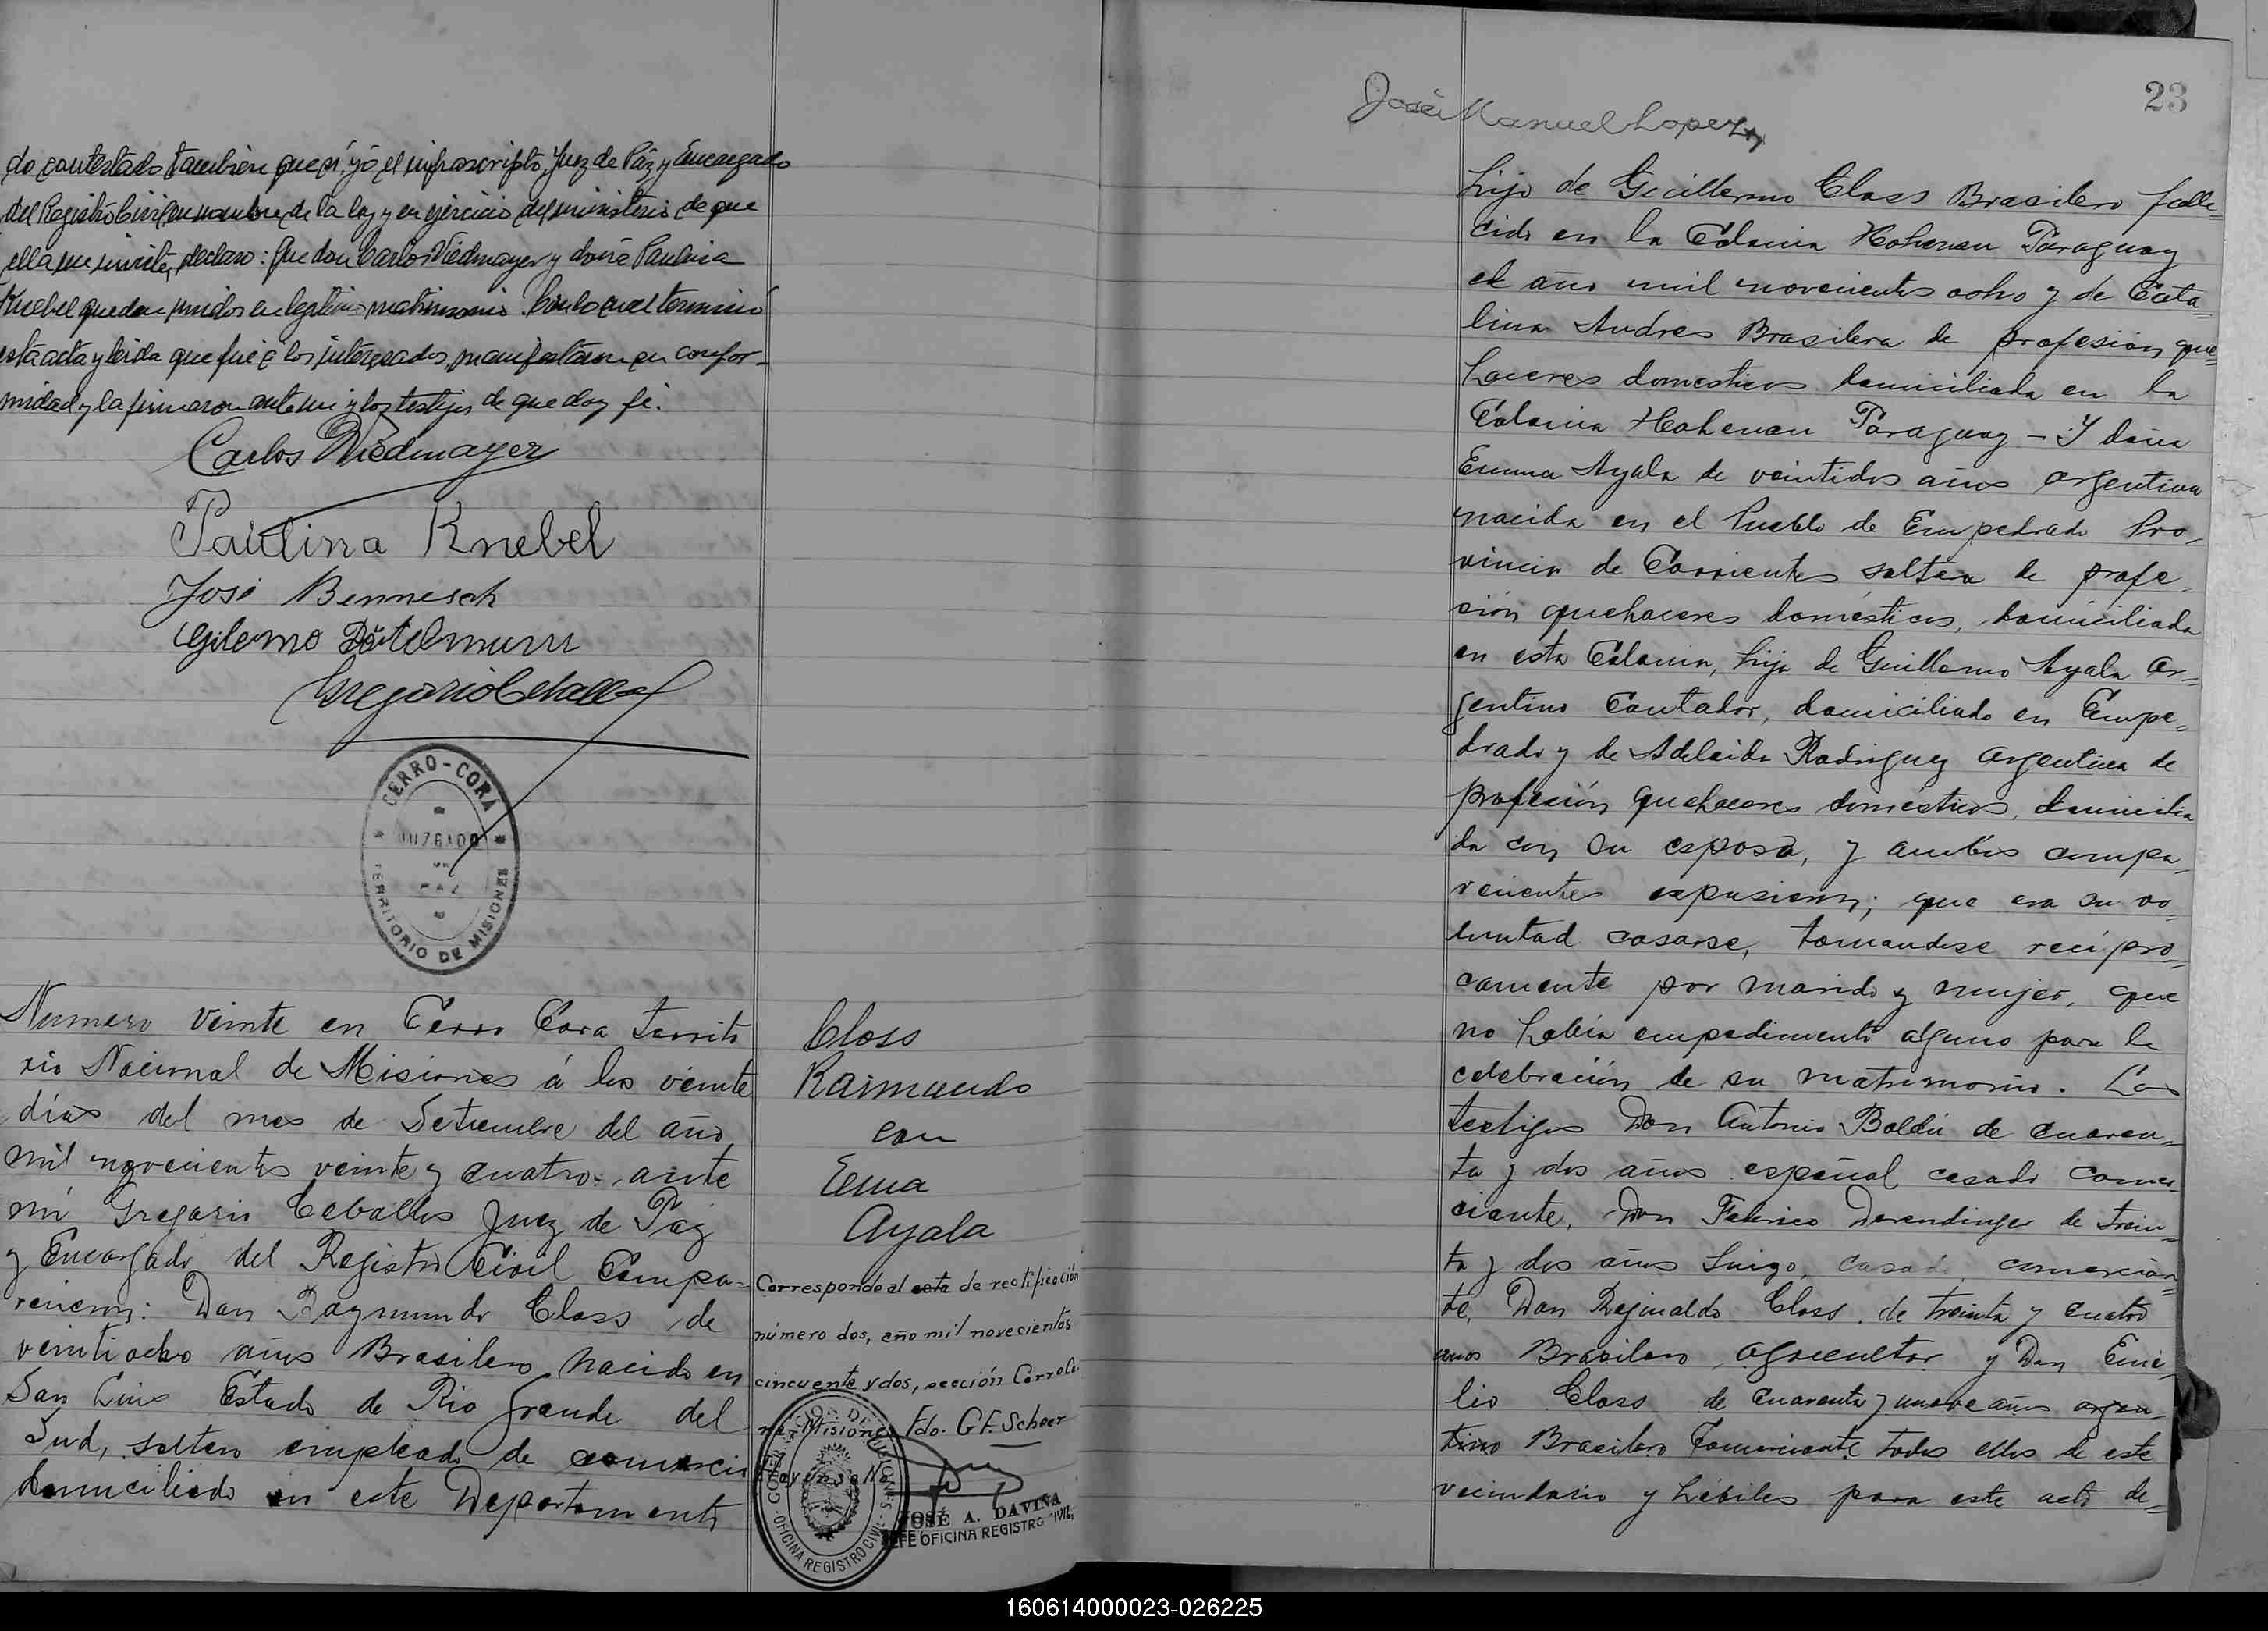 do contestado tambien que sí, yó el infrascripto, Juez de Páz y Encargado
del Registro Civil en nombre de la ley y en ejercicio del ministerio de que
ella me inviste, declaro: Que don Carlos Viedmayer y doña Paulina
Knebel quedan unidos en legitimo matrimonio. Con lo cual terminó
esta acta y leida que fué a los interesados, manifestaron su confor-
midad y la firmaron ante mi y los testigos de que doy fé.
Carlos Wiedmayer
Paulina Knebel
José Bennesch
Gregorio Ceballos
CERRO-CORA
JUZGADO
DE
PAZ
TERRITORIO DE MISIONES
Numero veinte en Cerro Cora territo
rio Nacional de Misiones á los veinte
días del mes de Setiembre del año
mil novecientos veinte y cuatro: ante
mí Gregorio Ceballos Juez de Paz
y Encargado del Registro Civil Compa-
recieron: Don Raymundo Closs de
veintiocho años Brasilero nacido en
San Luis Estado de Rio Grande del
Sud, soltero empleado de comercio
domiciliado en este Departamento
Closs
Raimundo
con
Ema
Ayala
Corresponde al acta de rectificación
número dos, año mil novecientos
cincuenta y dos, sección Cerro Co-
rá, Misiones Fdo. G.F. Scherer
GOBERNACION DE MISIONES
OFICINA REGISTRO CIVIL
JOSÉ A. DAVIÑA
JEFE OFICINA REGISTRO CIVIL
23
José Manuel Lopez
hijo de Guillermo Closs Brasilero falle-
cido en la Colonia Hohenau Paraguay
el año mil novecientos ocho y de Cata-
lina Andres Brasilera de profesión que-
haceres domesticos domiciliada en la
Colonia Hohenau Paraguay – Y doña
Emma Ayala de veintidos años argentina
nacida en el Pueblo de Empedrado Pro-
vincia de Corrientes soltera de profe-
sión quehaceres domésticos, domiciliada
en esta Colonia, hija de Guillermo Ayala Ar-
gentino Contador, domiciliado en Empe-
drado y de Adelaida Rodriguez argentina de
profesión quehaceres domésticos, domicilia
da con su esposo, y ambos compa-
recientes expusieron; que era su vo-
luntad casarse, tomandose recipro-
camente por marido y mujer, que
no había empedimento alguno para la
celebración de su matrimonio. Los
testigos Don Antonio Boldú de cuaren-
ta y dos años español casado comer-
ciante, Don Federico Derendinger de trein-
ta y dos años Suizo, casado, comercian-
te, Don Reginaldo Closs de treinta y cuatro
años Brasilero, agricultor y Don Emi-
lio Closs de cuarenta y nueve años argen-
tino Brasilero Comerciante todos ellos de este
vecindario y hábiles para este acto de-
160614000023-026225